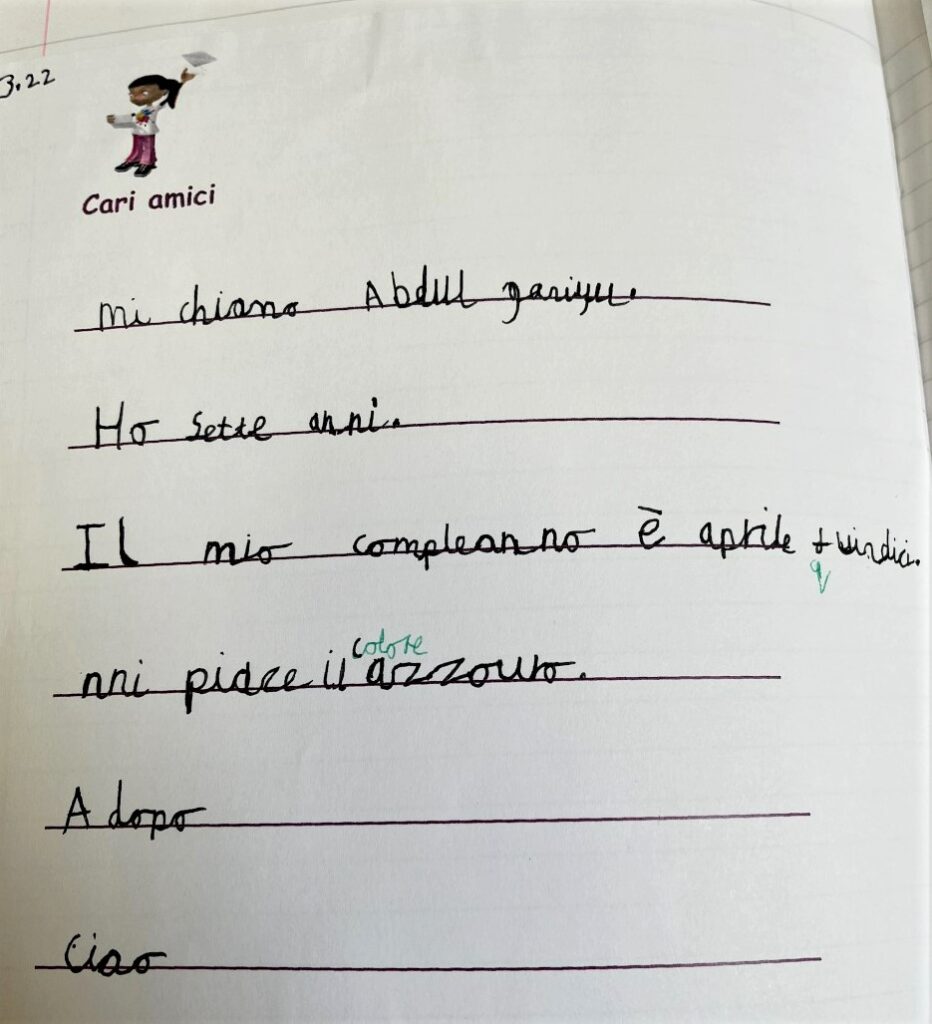 3.22
Cari amici
mi chiamo Abdul gariyu.
Ho sette anni.
Il mio compleanno è aprile
q
colore
mi piace il azzouro.
A dopo
Ciao